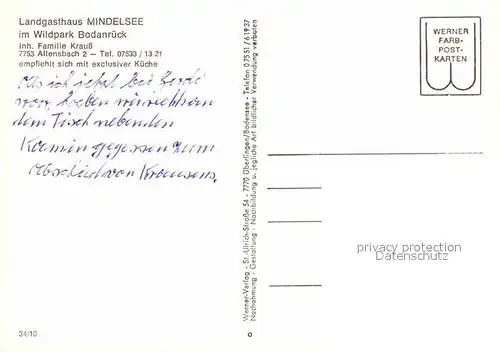 Landgasthaus MINDELSEE
im Wildpark Bodanrück
Inh. Familie Krauß
7753 Allensbach 2 – Tel. 07533 / 13 21
empfiehlt sich mit exclusiver Küche
Als ich jetzt bei Gerdi
war, haben wir
dem Tisch neben den
Kamin gegessen zum
Abschied von Krausens.
34/10
Werner-Verlag - St.-Ulrich-Straße 54 - 7770 Überlingen/Bodensee - Telefon 0 75 51 / 6 19 37
Nachahmung - Gestaltung - Nachbildung u. jegliche Art bildlicher Verwendung verboten
WERNER
FARB-
POST-
KARTEN
privacy protection
ansichtskarten-center.de